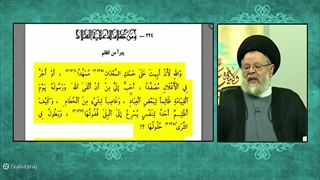 ٢٢٤ — ومن كلام له عليه السلام
يتبرأ من الظلم
وَاللهِ لَأَنْ أَبِيتَ عَلَى حَسَكِ السَّعْدَانِ مُسَهَّداً ، أَوْ أُجَرَّ
فِي الْأَغْلَالِ مُصَفَّداً ، أَحَبُّ إِلَيَّ مِنْ أَنْ أَلْقَى اللهَ وَرَسُولَهُ يَوْمَ
الْقِيَامَةِ ظَالِماً لِبَعْضِ الْعِبَادِ ، وَغَاصِباً لِشَيْءٍ مِنَ الْحُطَامِ ، وَكَيْفَ
أَظْلِمُ أَحَداً لِنَفْسٍ يُسْرِعُ إِلَى الْبِلَى قُفُولُهَا ، وَيَطُولُ فِي
الثَّرَى حُلُولُهَا ؟!
/valiasraj